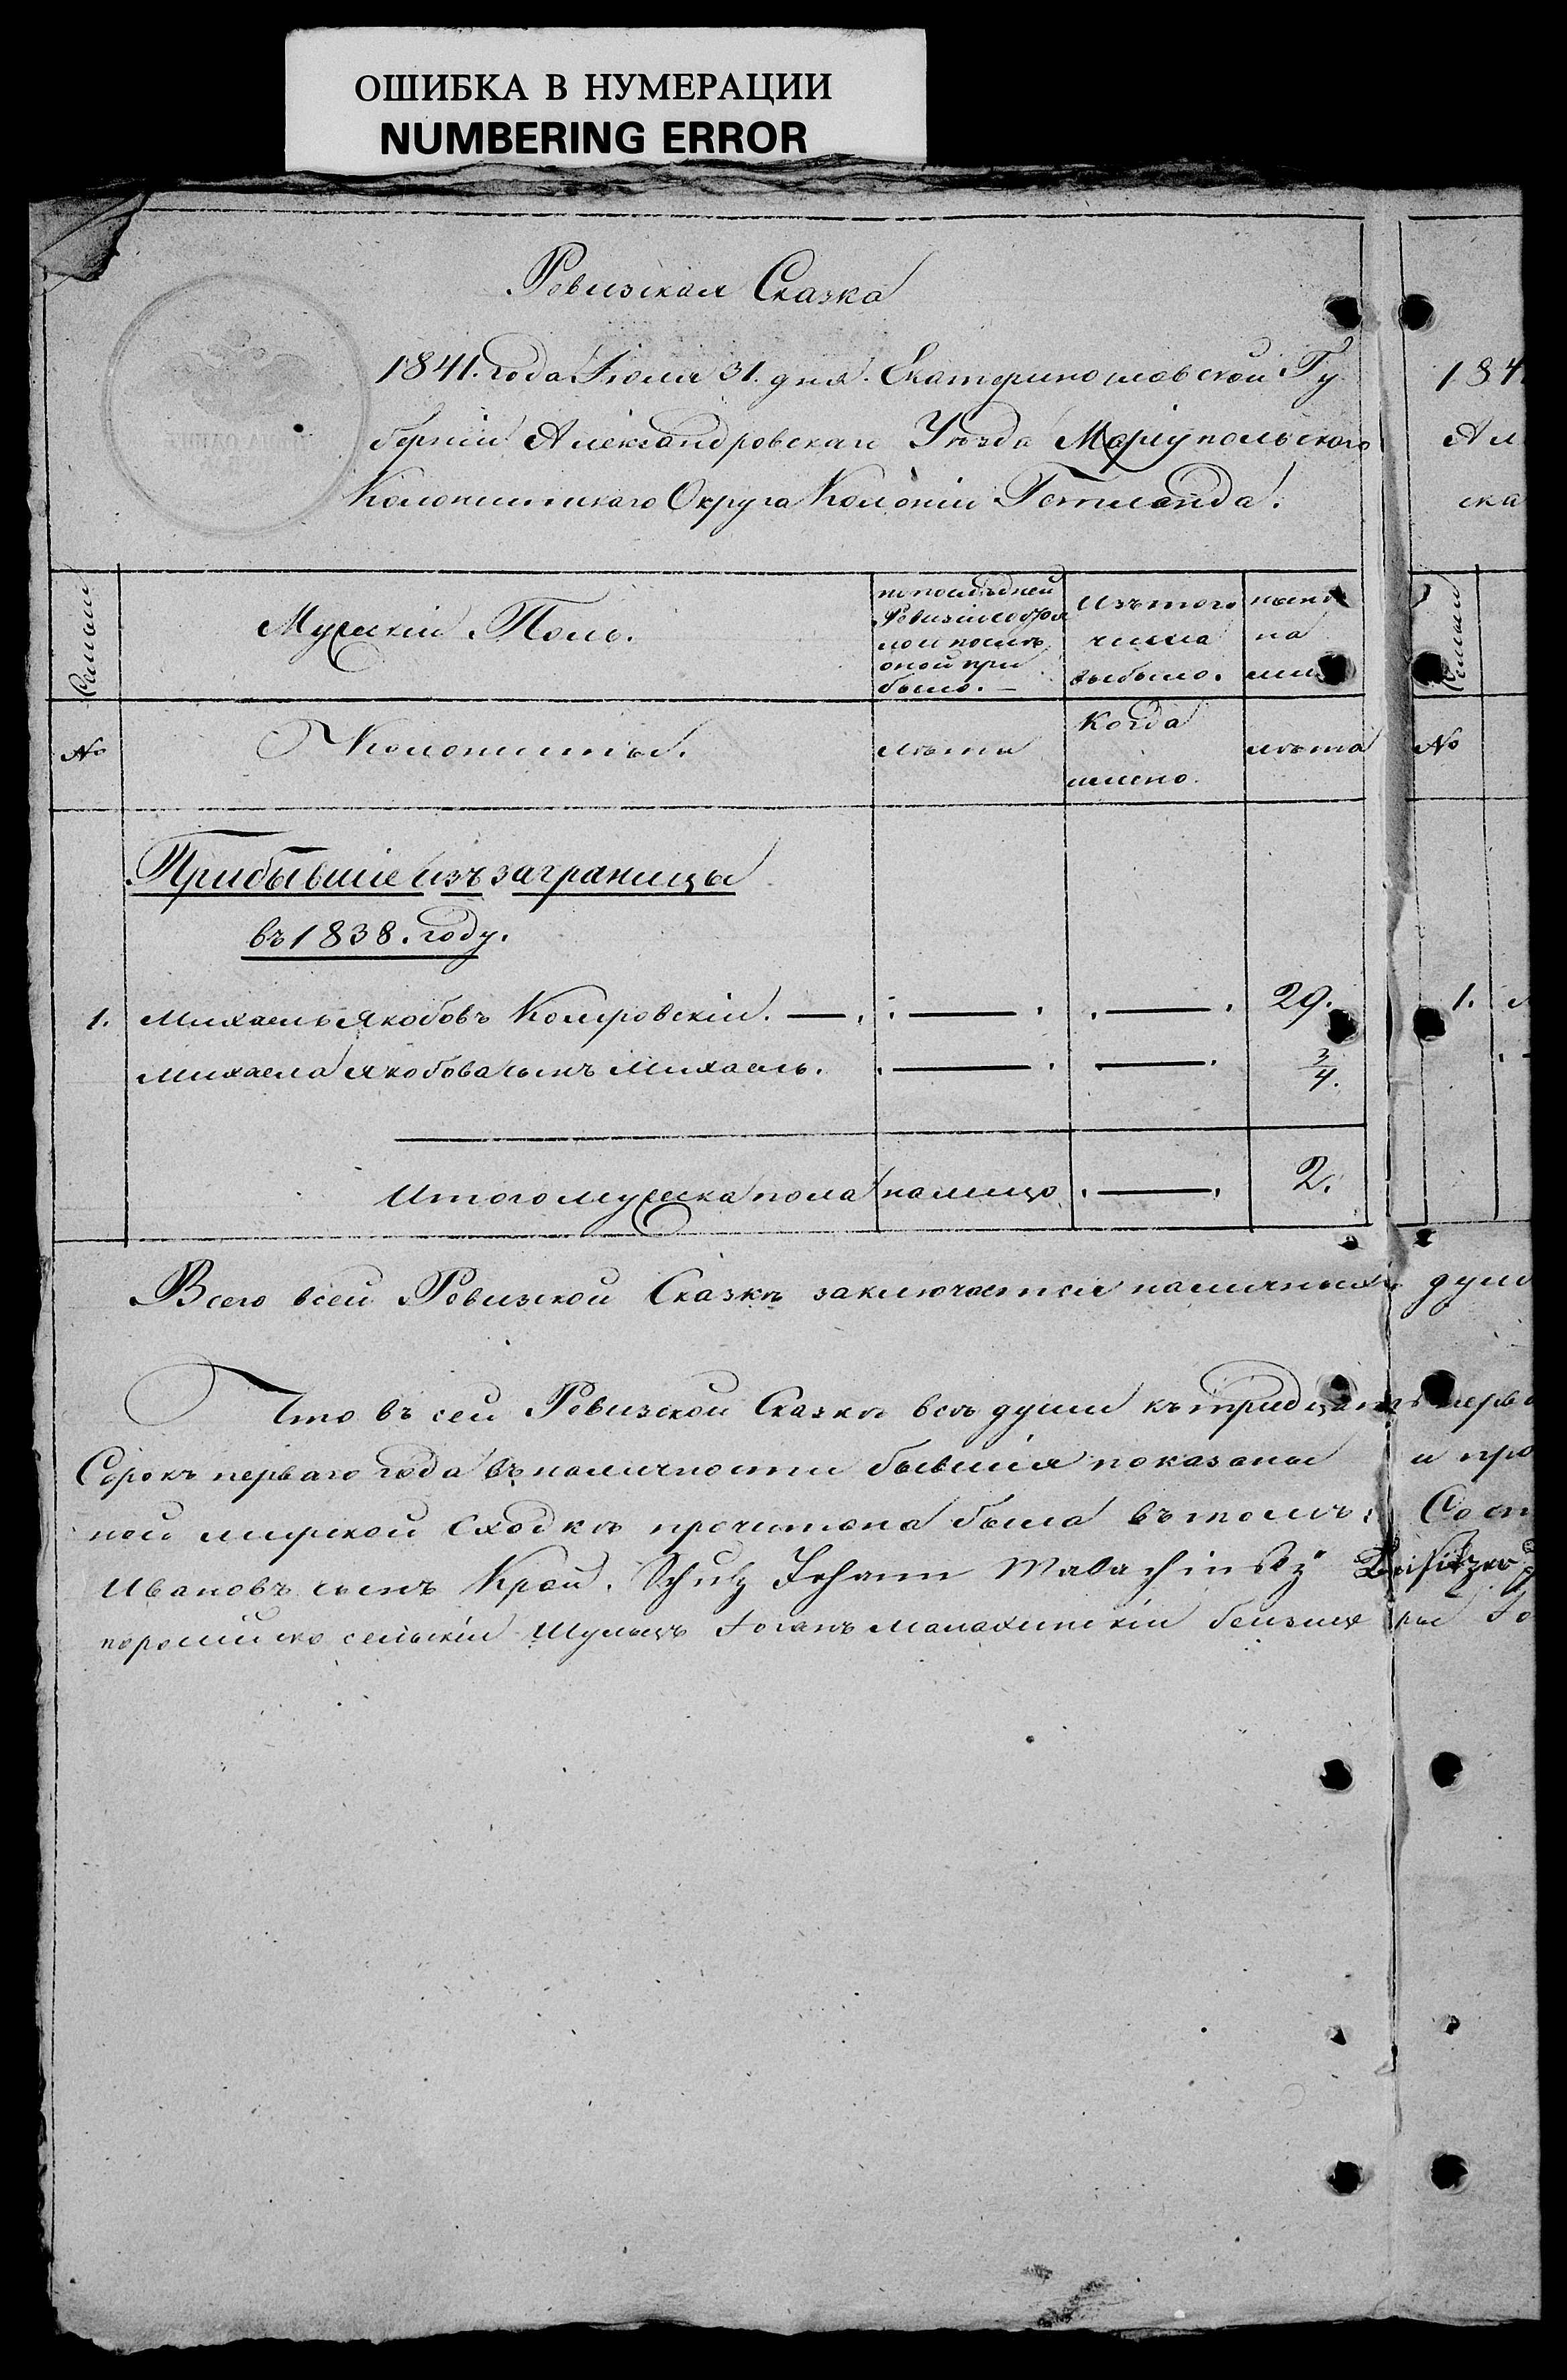 ОШИБКА В НУМЕРАЦИИ
NUMBERING ERROR
Ревизская Сказка
1841. года Іюля 31. дня. Екатеринославской Гу
берніи Александровскаго Уѣзда Маріупольскаго
Колонистскаго Округа Колоніи Готланда.
184
Ал
ска
Семьи
Мужескій Полъ.
по послѣдней
Ревизіи состоя
ло и послѣ
оной при
было.
Изъ того
числа
выбыло.
нынѣ
на
лицо
Семьи
№
Колонисты.
лѣта
Когда
имено.
лѣта
№
Прибывшіе изъ заграницы
въ 1838. году.
1. Михаель Якобовъ Комровскій. 29.
1.
Михаела Якобова сынъ Михаель. 3/4.
Итого мужеска пола налицо 2.
Всего въ сей Ревизской Сказкѣ заключается наличныхъ душ
Что въ сей Ревизской Сказкѣ всѣ души къ тридцать перво
Сорокъ перваго года въ наличности бывшія показаны и про
ной мирской Сходкѣ прочитана была въ томъ: Сост
Ивановъ сынъ Крой. Schulz Johann Malachinsky Beisitzer
по россійско сельскій Шульцъ Іоганъ Малахинскій беизицеры Іо